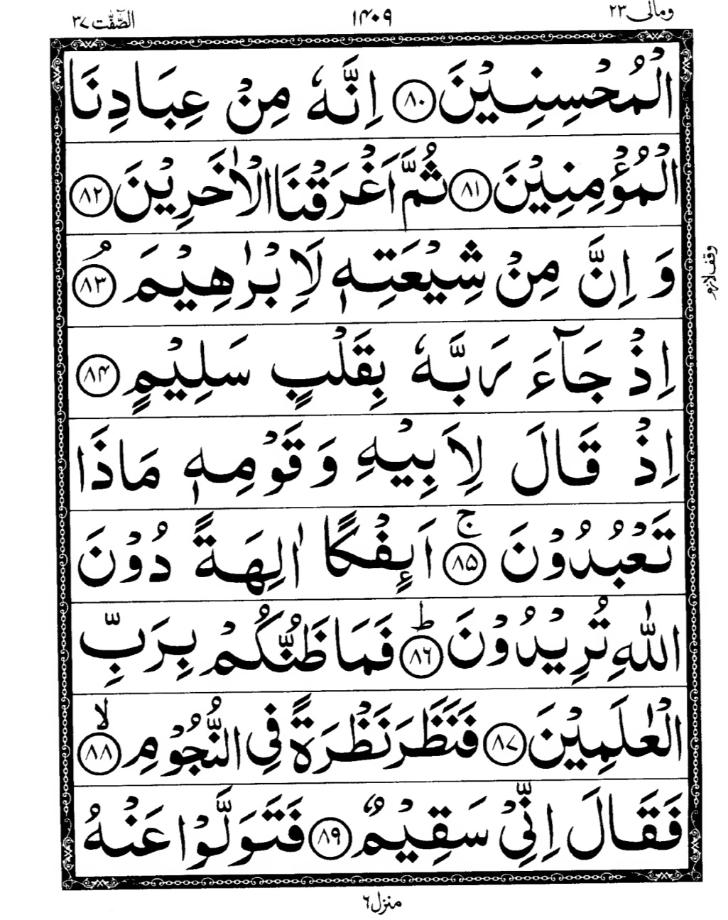 ومالی ٢٣ ١٤٠٩ الصّٰٓفّٰت ٣٧
الْمُحْسِنِيْنَ ﴿٨٠﴾ اِنَّهٗ مِنْ عِبَادِنَا
الْمُؤْمِنِيْنَ ﴿٨١﴾ ثُمَّ اَغْرَقْنَا الْاٰخَرِيْنَ ﴿٨٢﴾
وَ اِنَّ مِنْ شِيْعَتِهٖ لَاِبْرٰهِيْمَ ۘ ﴿٨٣﴾
وقف لازم
اِذْ جَآءَ رَبَّهٗ بِقَلْبٍ سَلِيْمٍ ﴿٨٤﴾
اِذْ قَالَ لِاَبِيْهِ وَ قَوْمِهٖ مَاذَا
تَعْبُدُوْنَ ۚ ﴿٨٥﴾ اَئِفْكًا اٰلِهَةً دُوْنَ
اللّٰهِ تُرِيْدُوْنَ ؕ ﴿٨٦﴾ فَمَا ظَنُّكُمْ بِرَبِّ
الْعٰلَمِيْنَ ﴿٨٧﴾ فَنَظَرَ نَظْرَةً فِي النُّجُوْمِ ۙ ﴿٨٨﴾
فَقَالَ اِنِّيْ سَقِيْمٌ ﴿٨٩﴾ فَتَوَلَّوْا عَنْهُ
منزل ٦